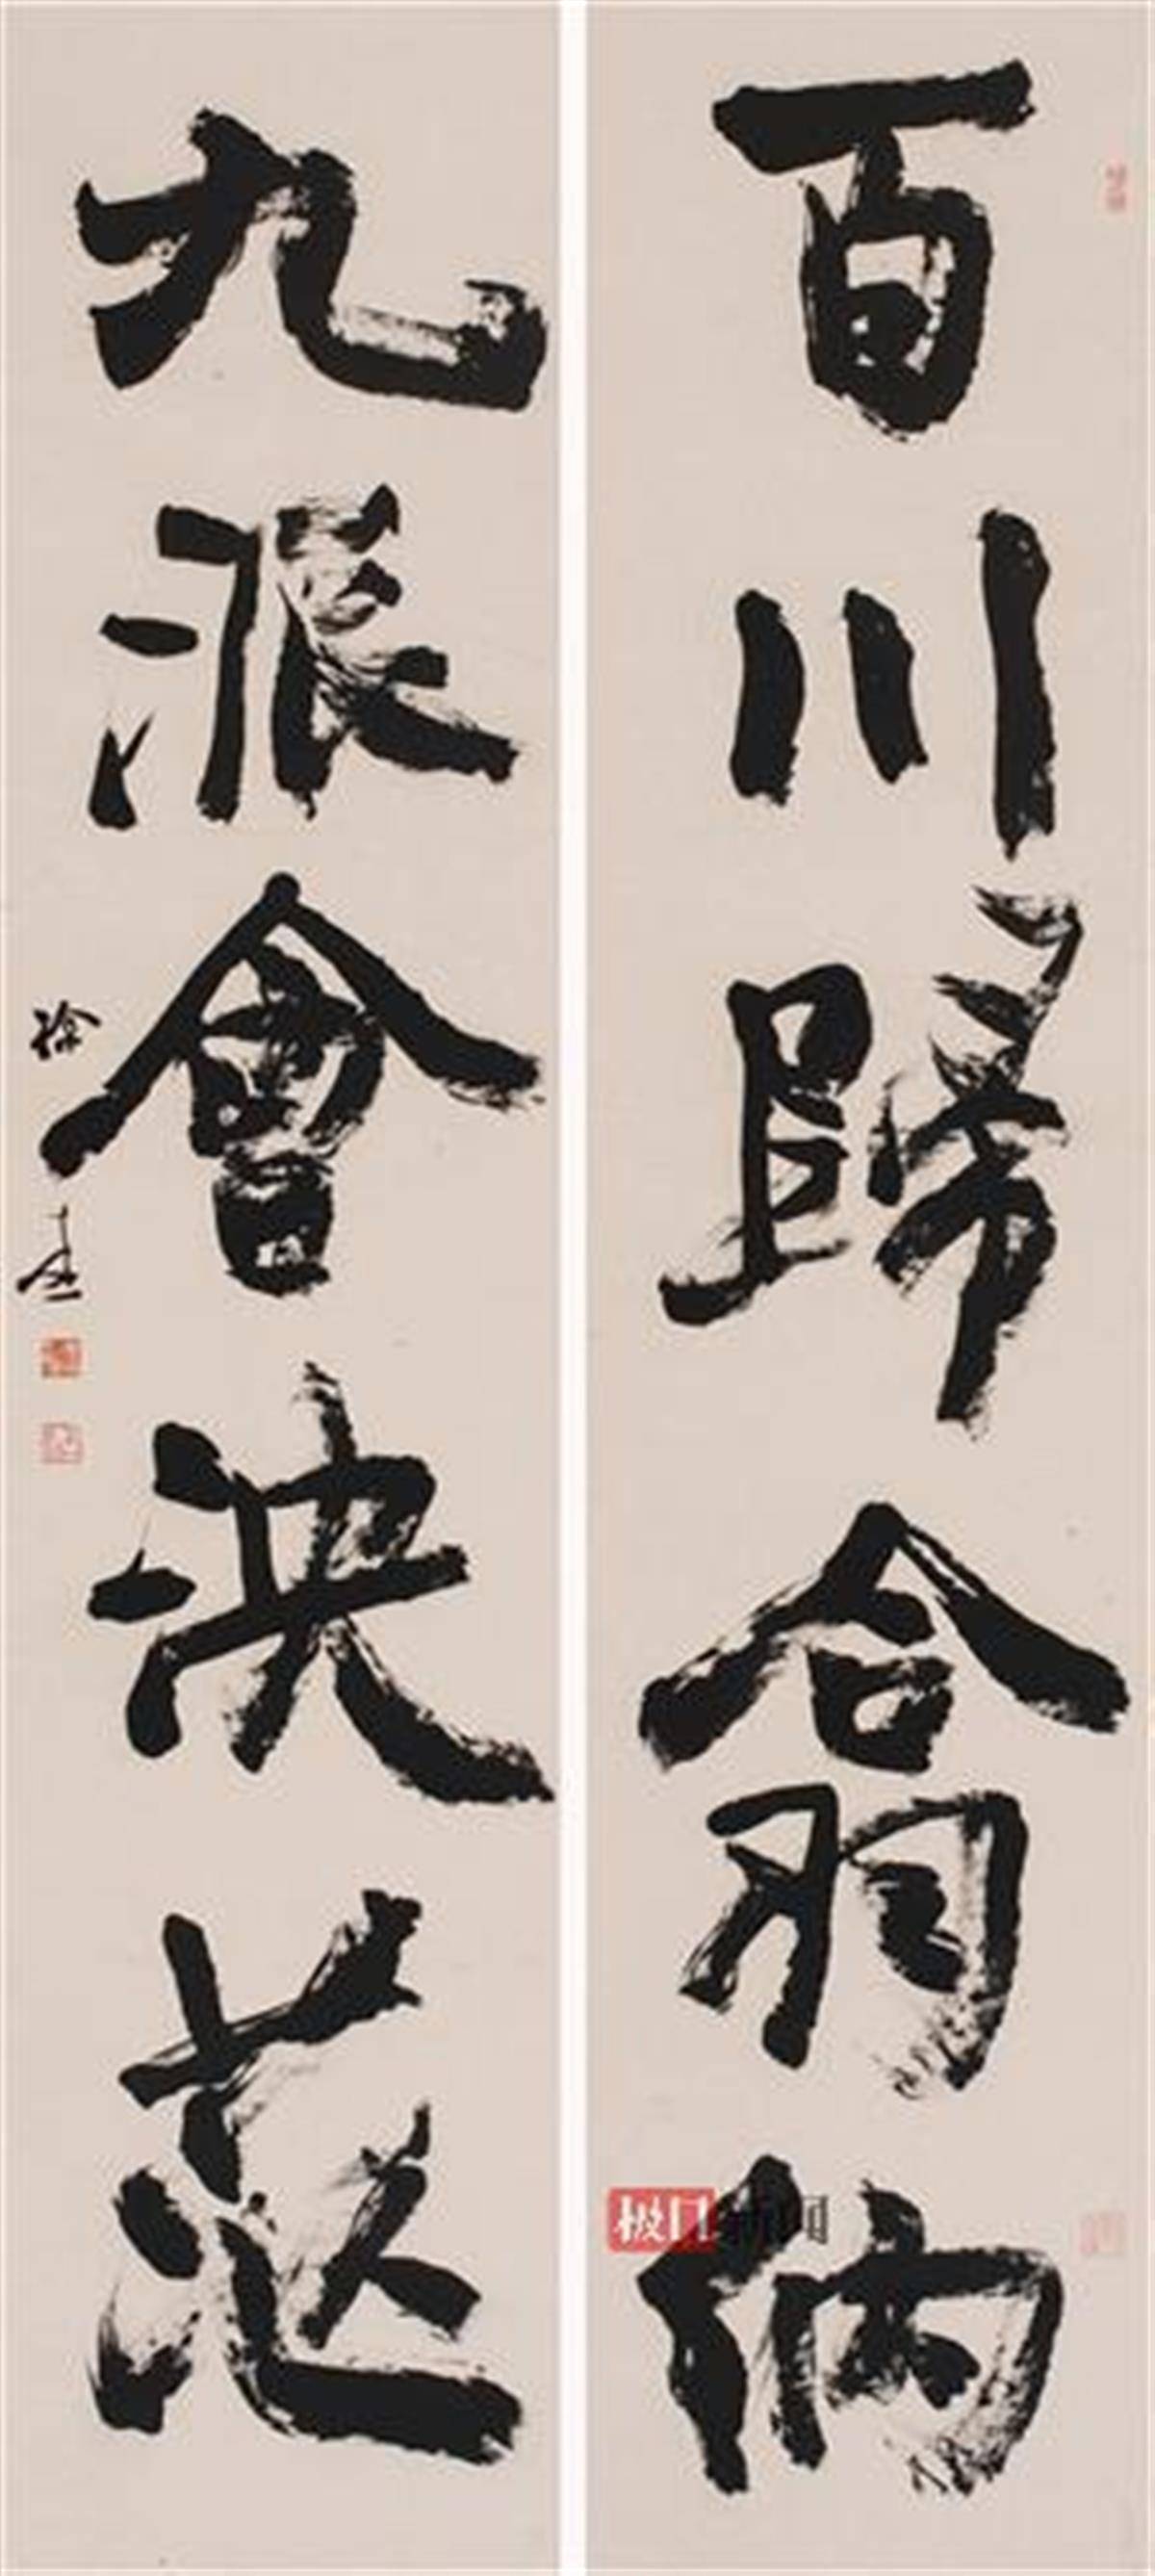 百川歸翕納
九派會泱茫
徐
极目新闻